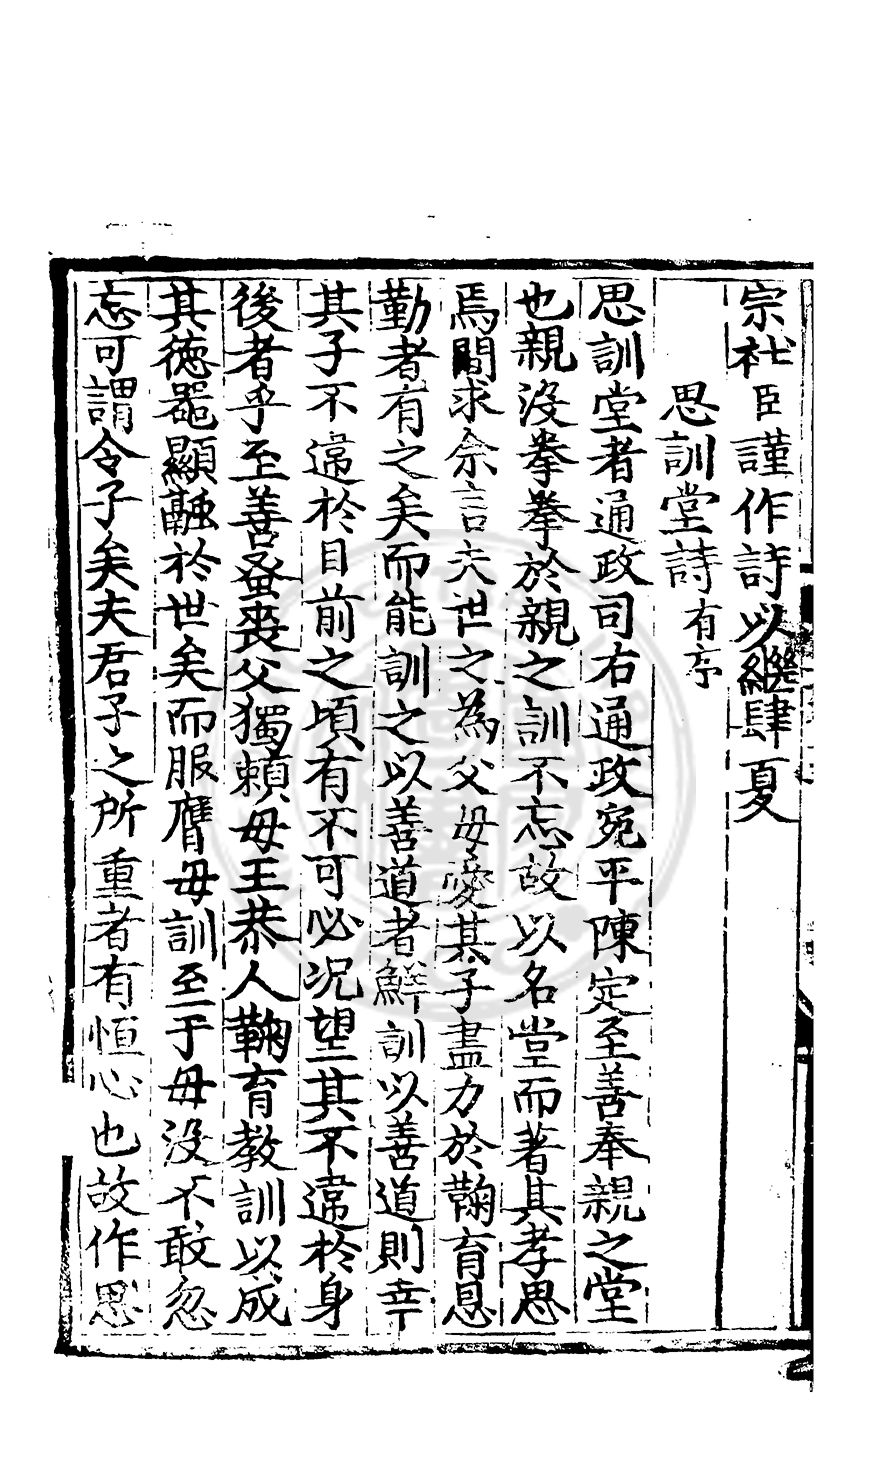 宗社臣謹作詩以繼肆夏
思訓堂詩有序
思訓堂者通政司右通政宛平陳定至善奉親之堂
也親没拳拳於親之訓不忘故以名堂而著其孝思
焉間求余言夫世之為父母愛其子盡力於鞠育恩
勤者有之矣而能訓之以善道者鮮訓以善道則幸
其子不違於目前之頃有不可必况望其不違於身
後者乎至善蚤喪父獨頼母王恭人鞠育教訓以成
其徳器顯融於世矣而服膺母訓至于母没不敢忽
忘可謂令子矣夫君子之所重者有恒心也故作思